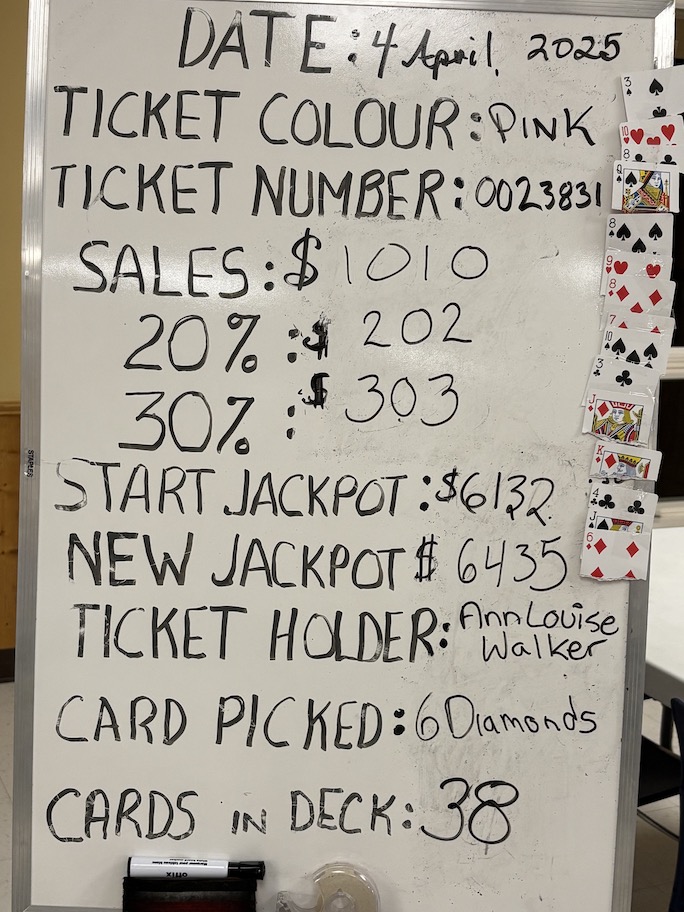 DATE: 4 April, 2025
TICKET COLOUR: PINK
TICKET NUMBER: 0023831
SALES: $ 1010
20% : $ 202
30% : $ 303
START JACKPOT: $6132
NEW JACKPOT $ 6435
TICKET HOLDER: Ann Louise
Walker
CARD PICKED: 6 Diamonds
CARDS IN DECK: 38
3
10
8
Q
8
9
8
7
10
3
J
K
4
J
6
STAPLES
offix